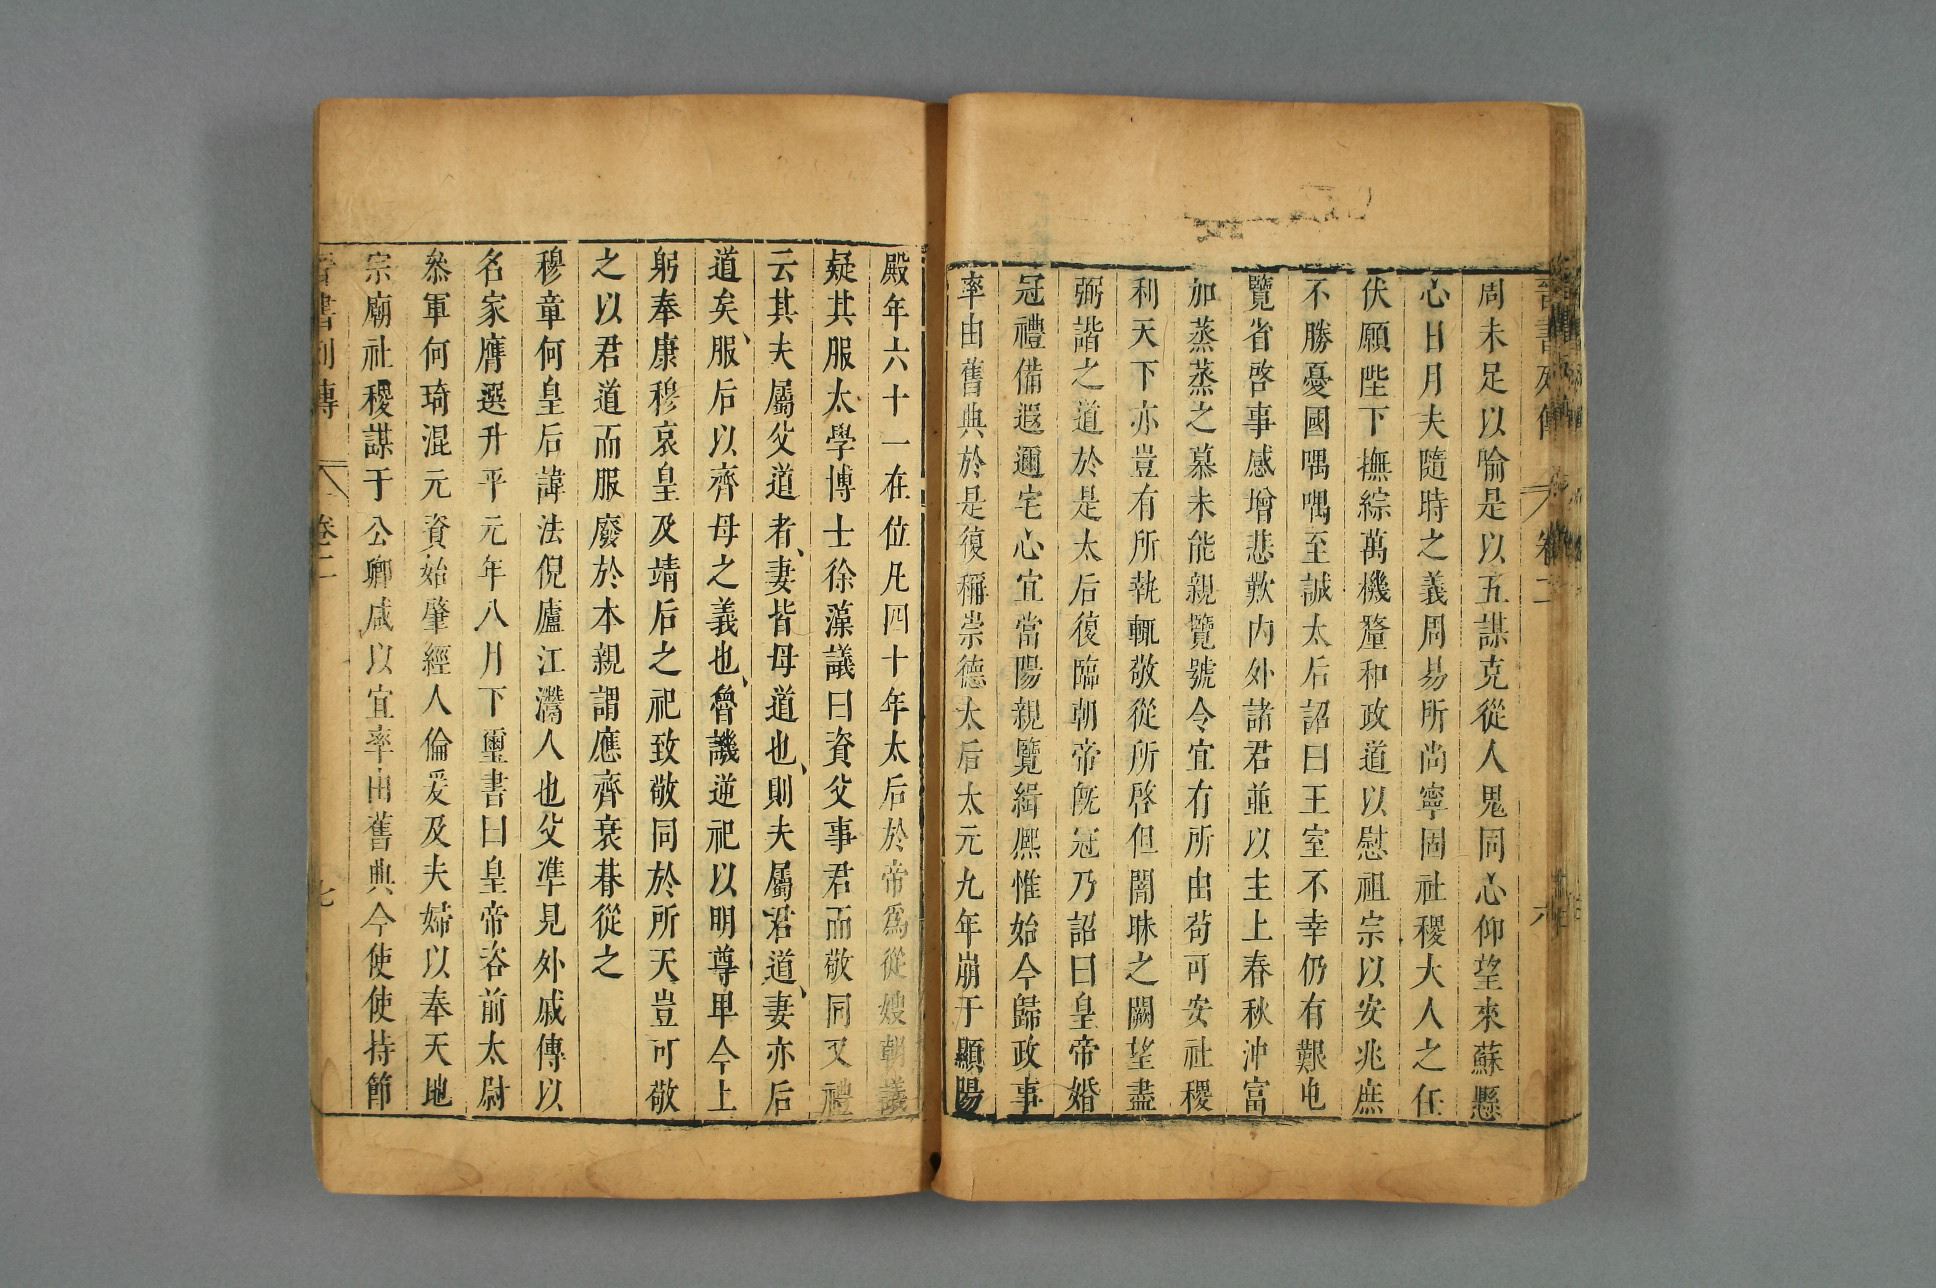 晉書列傳 卷二 六
周未足以喻是以五謀克從人鬼同心仰望來蘇懸
心日月夫隨時之義周易所尚寧固社稷大人之任
伏願陛下撫綜萬機釐和政道以慰祖宗以安兆庶
不勝憂國喁喁至誠太后詔曰王室不幸仍有艱屯
覽省啓事感增悲歎內外諸君並以主上春秋沖富
加蒸蒸之慕未能親覽號令宜有所由苟可安社稷
利天下亦豈有所執輒敬從所啓但闇昧之闕望盡
弼諧之道於是太后復臨朝帝旣冠乃詔曰皇帝婚
冠禮備遐邇宅心宜當陽親覽緝熈惟始今歸政事
率由舊典於是復稱崇德太后太元九年崩于顯陽
殿年六十一在位凡四十年太后於帝爲從嫂朝議
疑其服太學博士徐藻議曰資父事君而敬同又禮
云其夫屬父道者、妻皆母道也、則夫屬君道、妻亦后
道矣、服后以齊母之義也、魯譏逆祀以明尊卑今上
躬奉康穆哀皇及靖后之祀致敬同於所天豈可敬
之以君道而服廢於本親謂應齊衰朞從之
穆章何皇后諱法倪廬江灊人也父準見外戚傳以
名家膺選升平元年八月下璽書曰皇帝咨前太尉
叅軍何琦混元資始肇經人倫爰及夫婦以奉天地
宗廟社稷謀于公卿咸以宜率由舊典今使使持節
晉書列傳 卷二 七